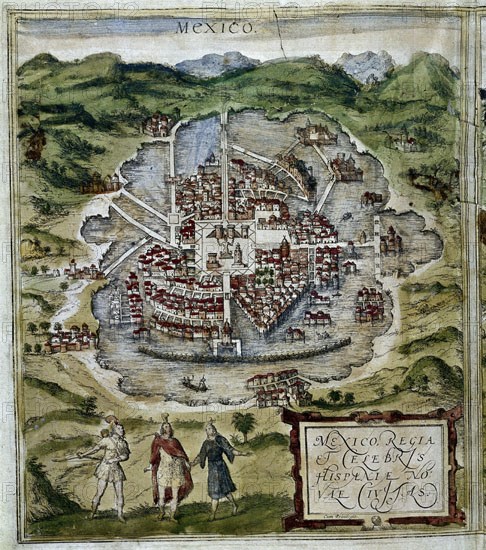 MEXICO.
MEXICO, REGIA
ET CELEBRIS
HISPANIAE NO
VAE CIVITAS.